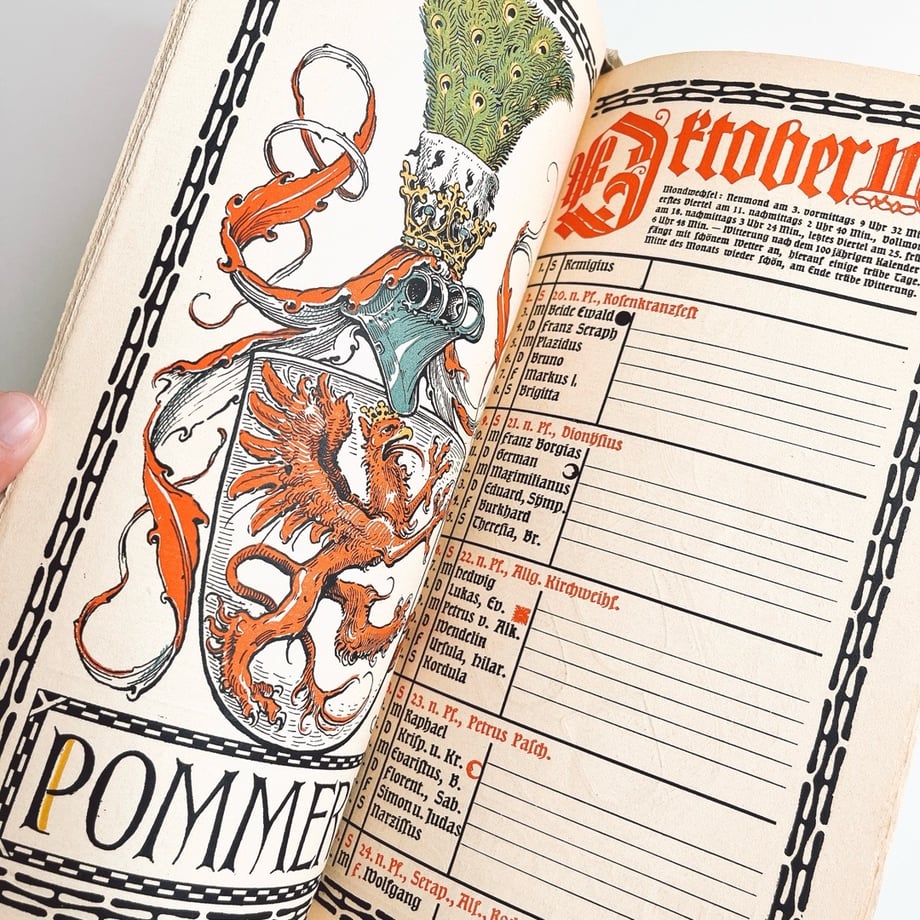 POMMER
Oktoberm
Mondwechsel: Neumond am 3. vormittags 9 Uhr 32 M
erstes Viertel am 11. nachmittags 2 Uhr 40 Min., Vollm
am 18. nachmittags 3 Uhr 24 Min., letztes Viertel am 25. frü
6 Uhr 48 Min. — Witterung nach dem 100 jährigen Kalender
fängt mit schönem Wetter an, hierauf einige trübe Tage.
Mitte des Monats wieder schön, am Ende trübe Witterung.
1. S Remigius
2. S 20. n. Pf., Rosenkranzfest
3. M Beide Ewald
4. D Franz Seraph
5. M Plazidus
6. D Bruno
7. F Markus I.
8. S Brigitta
9. S 21. n. Pf., Dionysius
0. M Franz Borgias
D German
2. M Maximilianus
3. D Eduard, Symp.
4. F Burkhard
5. S Theresia, Br.
6. S 22. n. Pf., Allg. Kirchweihf.
M Hedwig
D Lukas, Ev.
M Petrus v. Alk.
D Wendelin
F Ursula, Hilar.
S Kordula
S 23. n. Pf., Petrus Pasch.
M Raphael
D Krisp. u. Kr.
M Evaristus, B.
D Florent., Sab.
F Simon u. Judas
S Narzissus
S 24. n. Pf., Serap., Alf., Ro
M F. Wolfgang